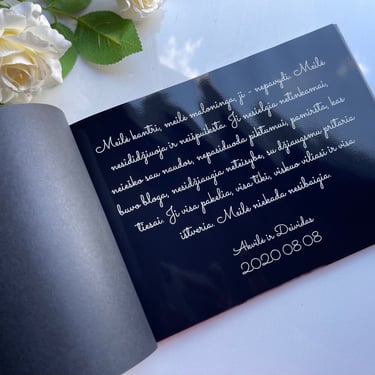 Meilė kantri, meilė maloninga, ji - nepavydi. Meilė
nesididžiuoja ir neišpuiksta. Ji nesielgia netinkamai,
neieško sau naudos, nepasiduoda piktumui, pamiršta, kas
buvo bloga, nesidžiaugia neteisybe, su džiaugsmu pritaria
tiesai. Ji visa pakelia, visa tiki, viskuo viliasi ir visa
ištveria. Meilė niekada nesibaigia.
Akvilė ir Deividas
2020 08 08